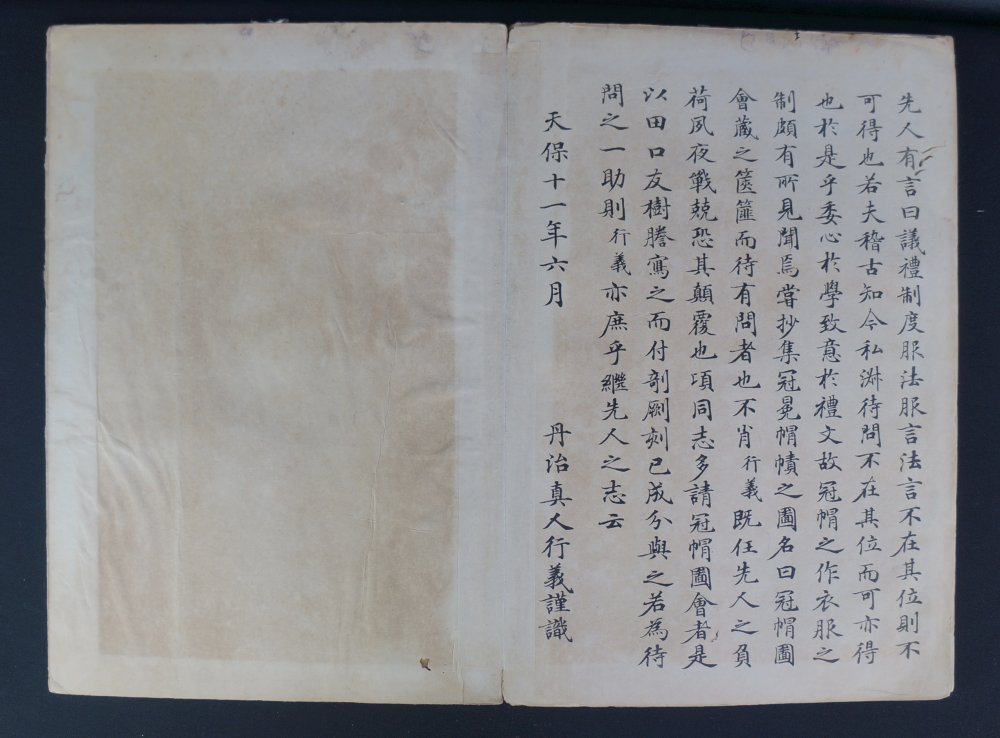 先人有言曰議禮制度服法服言法言不在其位則不
可得也若夫稽古知今私淑待問不在其位而可亦得
也於是乎委心於學致意於禮文故冠帽之作衣服之
制頗有所見聞焉嘗抄集冠冕帽幘之圖名曰冠帽圖
會藏之篋簏而待有問者也不肖行義既任先人之負
荷夙夜戰兢恐其顛覆也項同志多請冠帽圖會者是
以田口友樹謄寫之而付剞劂刻已成分與之若為待
問之一助則行義亦庶乎繼先人之志云
天保十一年六月 丹治真人行義謹識